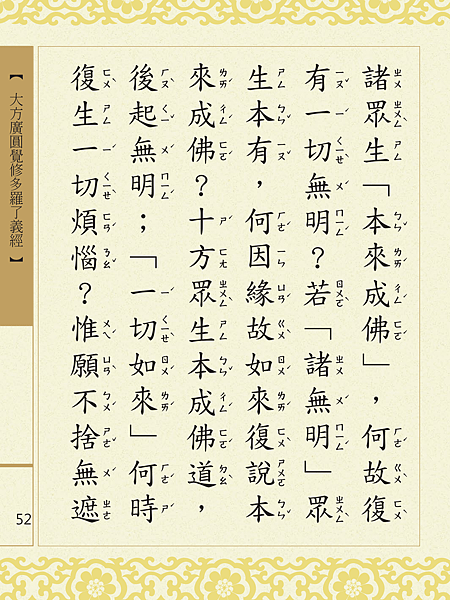 諸眾生「本來成佛」，何故復
有一切無明？若「諸無明」眾
生本有，何因緣故如來復說本
來成佛？十方眾生本成佛道，
後起無明；「一切如來」何時
復生一切煩惱？惟願不捨無遮
【 大方廣圓覺修多羅了義經 】
52